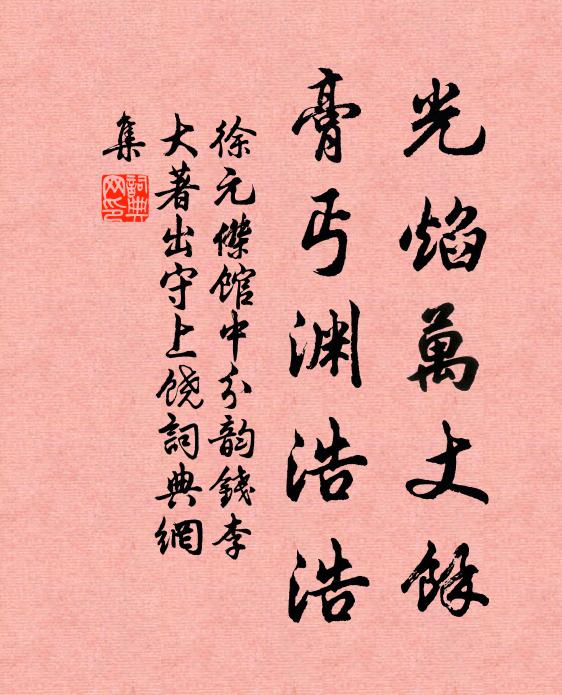 光焰萬丈餘
膏丐渊浩浩
徐元傑馆中分韵錢李
大著出守上饶詞典網
集
詞典
网印